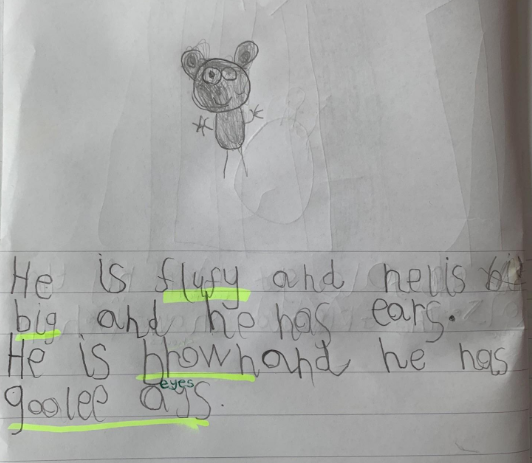 He is flyfy and he is
big and he has ears.
He is brown and he has
goolee ays.
eyes